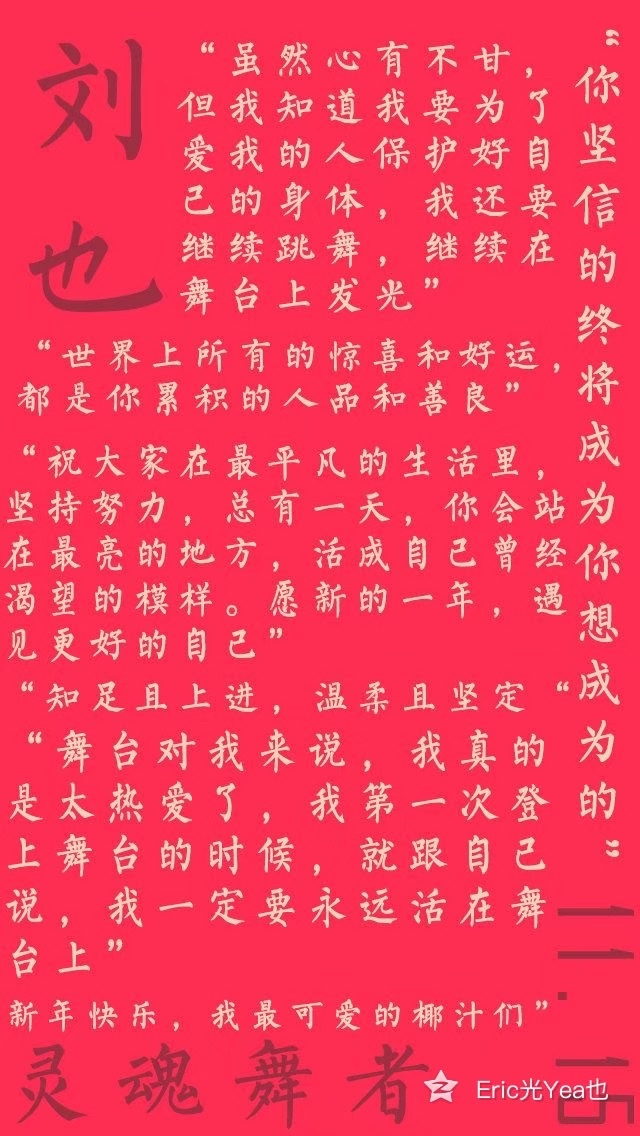 刘也
“虽然心有不甘，
但我知道我要为了
爱我的人保护好自
己的身体，我还要
继续跳舞，继续在
舞台上发光”
“你坚信的终将成为你想成为的”
“世界上所有的惊喜和好运，
都是你累积的人品和善良”
“祝大家在最平凡的生活里，
坚持努力，总有一天，你会站
在最亮的地方，活成自己曾经
渴望的模样。愿新的一年，遇
见更好的自己”
“知足且上进，温柔且坚定“
“舞台对我来说，我真的
是太热爱了，我第一次登
上舞台的时候，就跟自己
说，我一定要永远活在舞
台上”
新年快乐，我最可爱的椰汁们”
灵魂舞者
Eric光Yea也